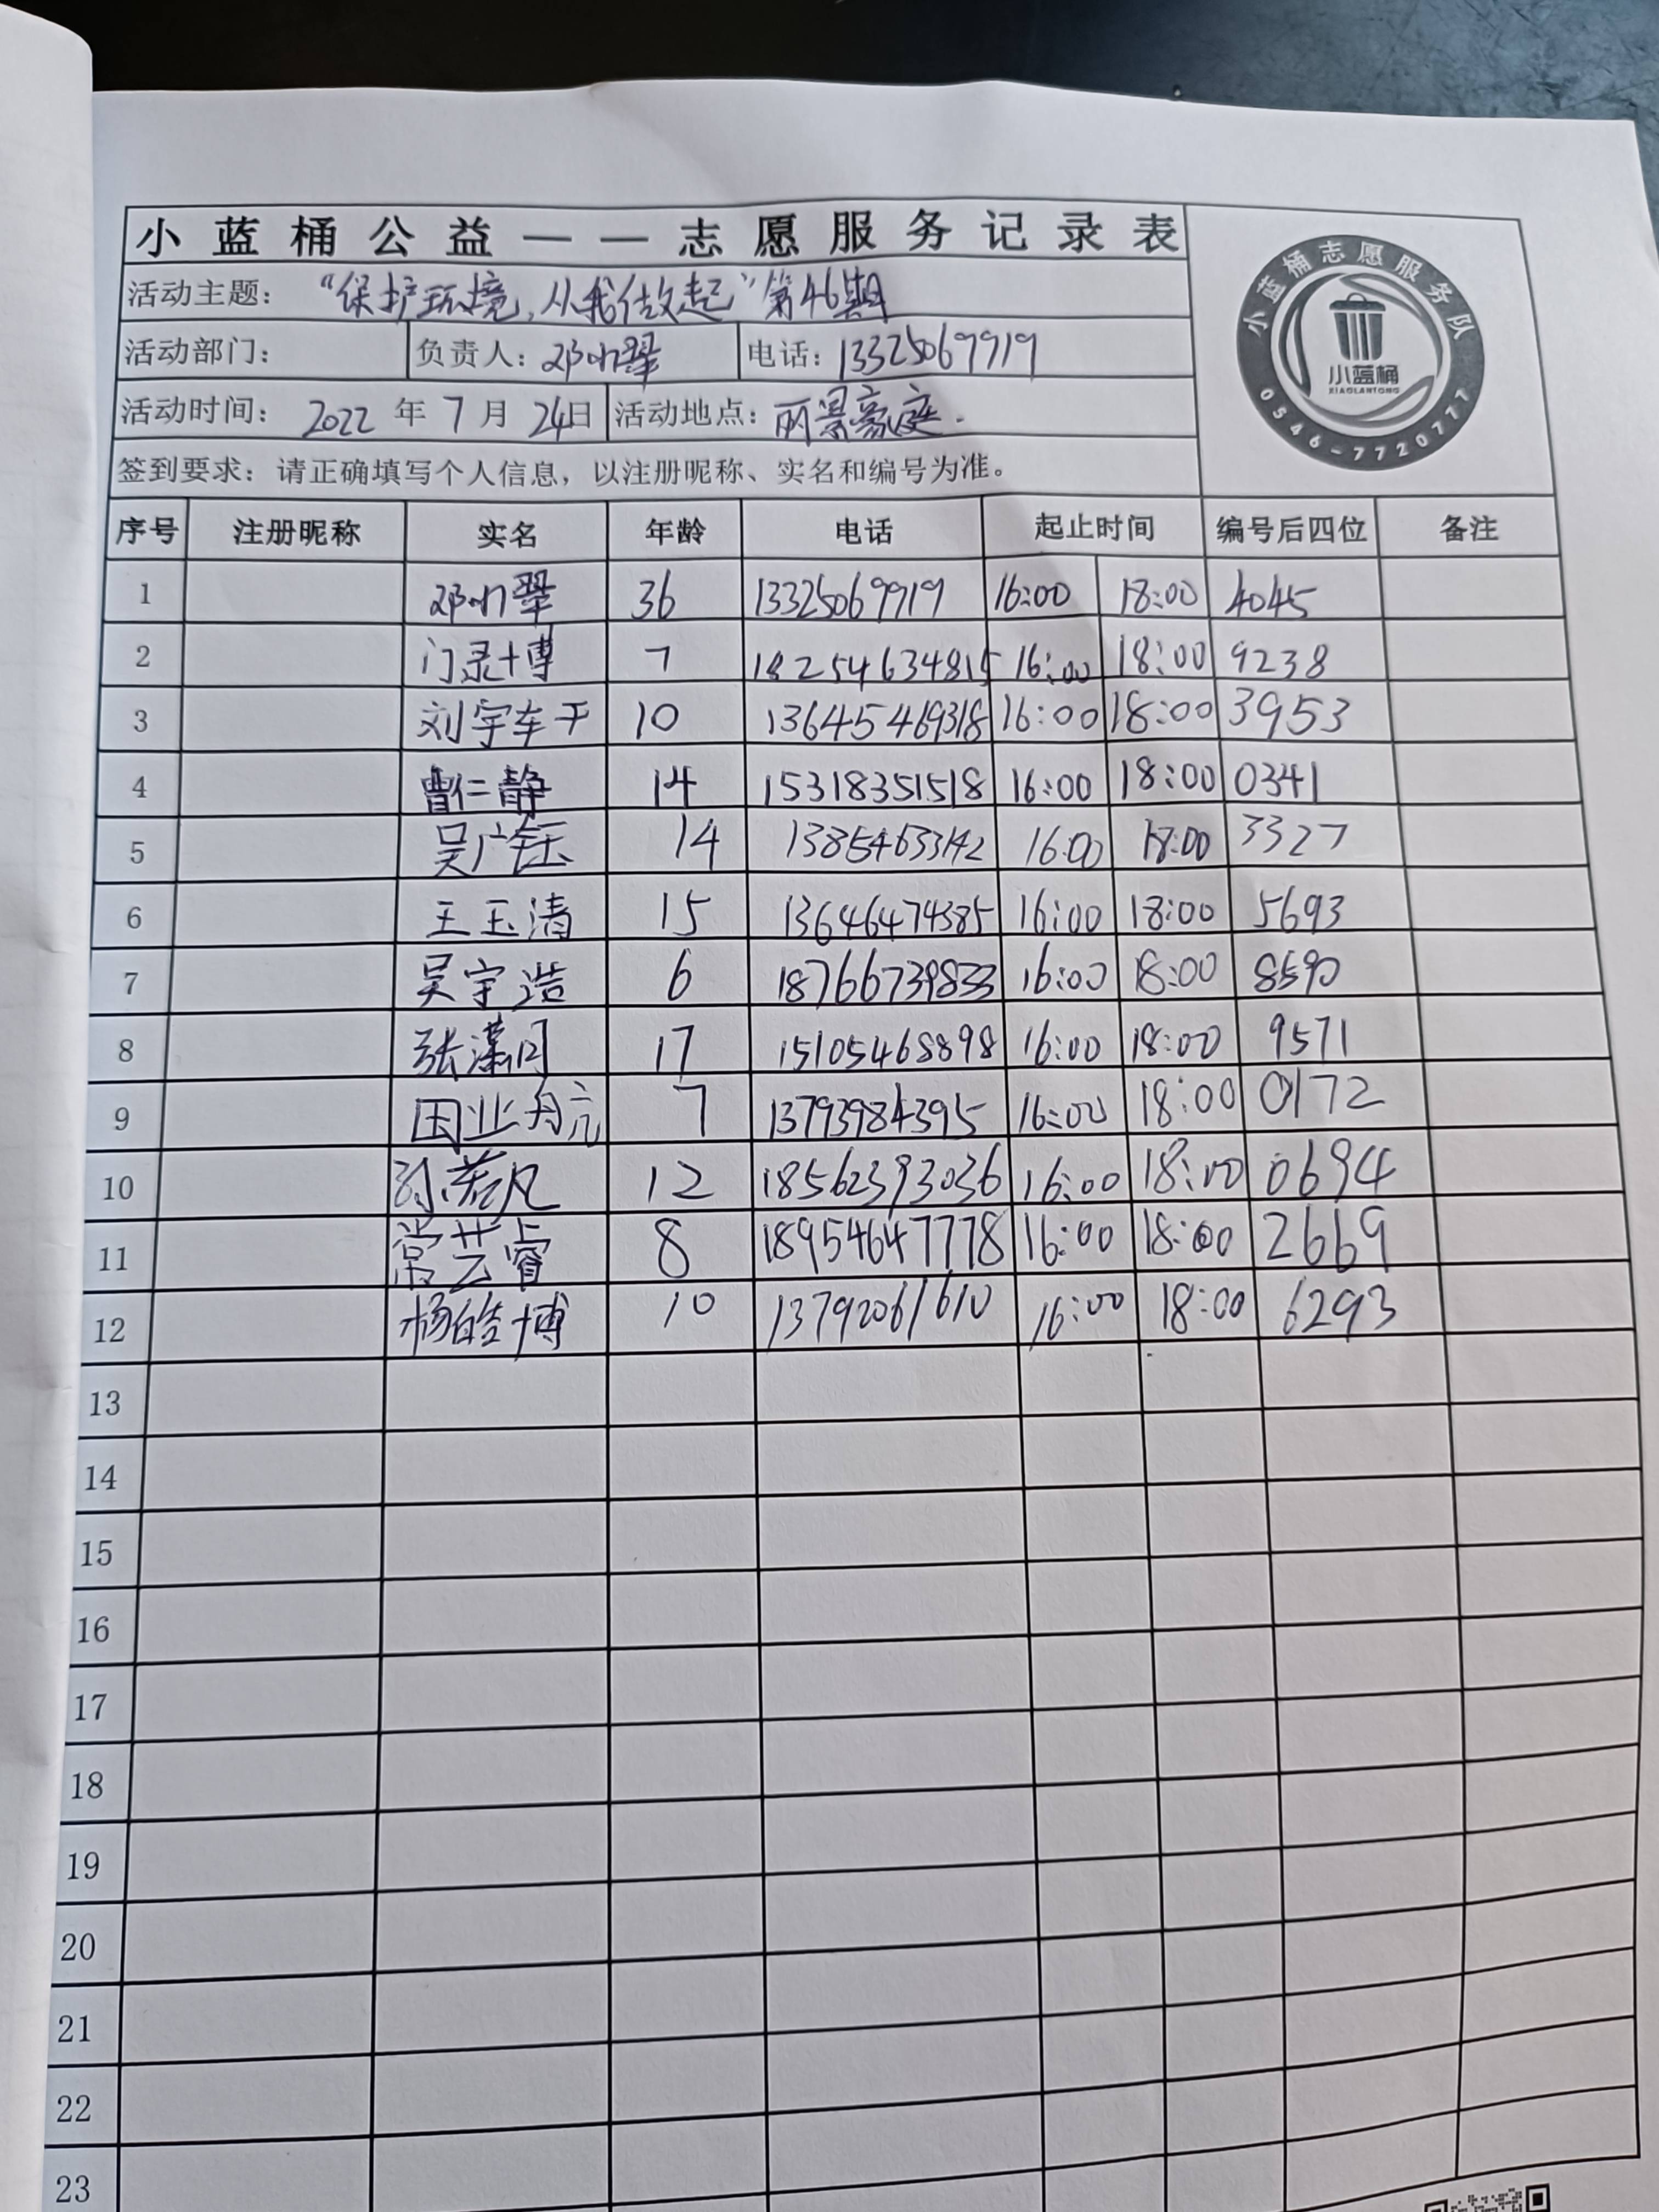 小蓝桶公益——志愿服务记录表
活动主题： “保护环境，从我做起”第46期
活动部门： 负责人： 邓小翠 电话： 13325069919
活动时间： 2022 年 7 月 24日 活动地点： 丽景豪庭.
签到要求：请正确填写个人信息，以注册昵称、实名和编号为准。
小蓝桶志愿服务队
小蓝桶
XIAOLANTONG
0546-7720777
序号 注册昵称 实名 年龄 电话 起止时间 编号后四位 备注
1 邓小翠 36 13325069919 16:00 18:00 4045
2 门录博 7 18254634815 16:00 18:00 9238
3 刘宇轩 10 13645469318 16:00 18:00 3953
4 曹仁静 14 15318351518 16:00 18:00 0341
5 吴广钰 14 13854633142 16:00 18:00 3327
6 王玉清 15 13646474385 16:00 18:00 5693
7 吴宇浩 6 18766739833 16:00 18:00 8590
8 张潇月 17 15105468898 16:00 18:00 9571
9 国业 7 13793984395 16:00 18:00 0172
10 孙若凡 12 18562393036 16:00 18:00 0694
11 常芸睿 8 18954647778 16:00 18:00 2669
12 杨皓博 10 13792061610 16:00 18:00 6293
13
14
15
16
17
18
19
20
21
22
23